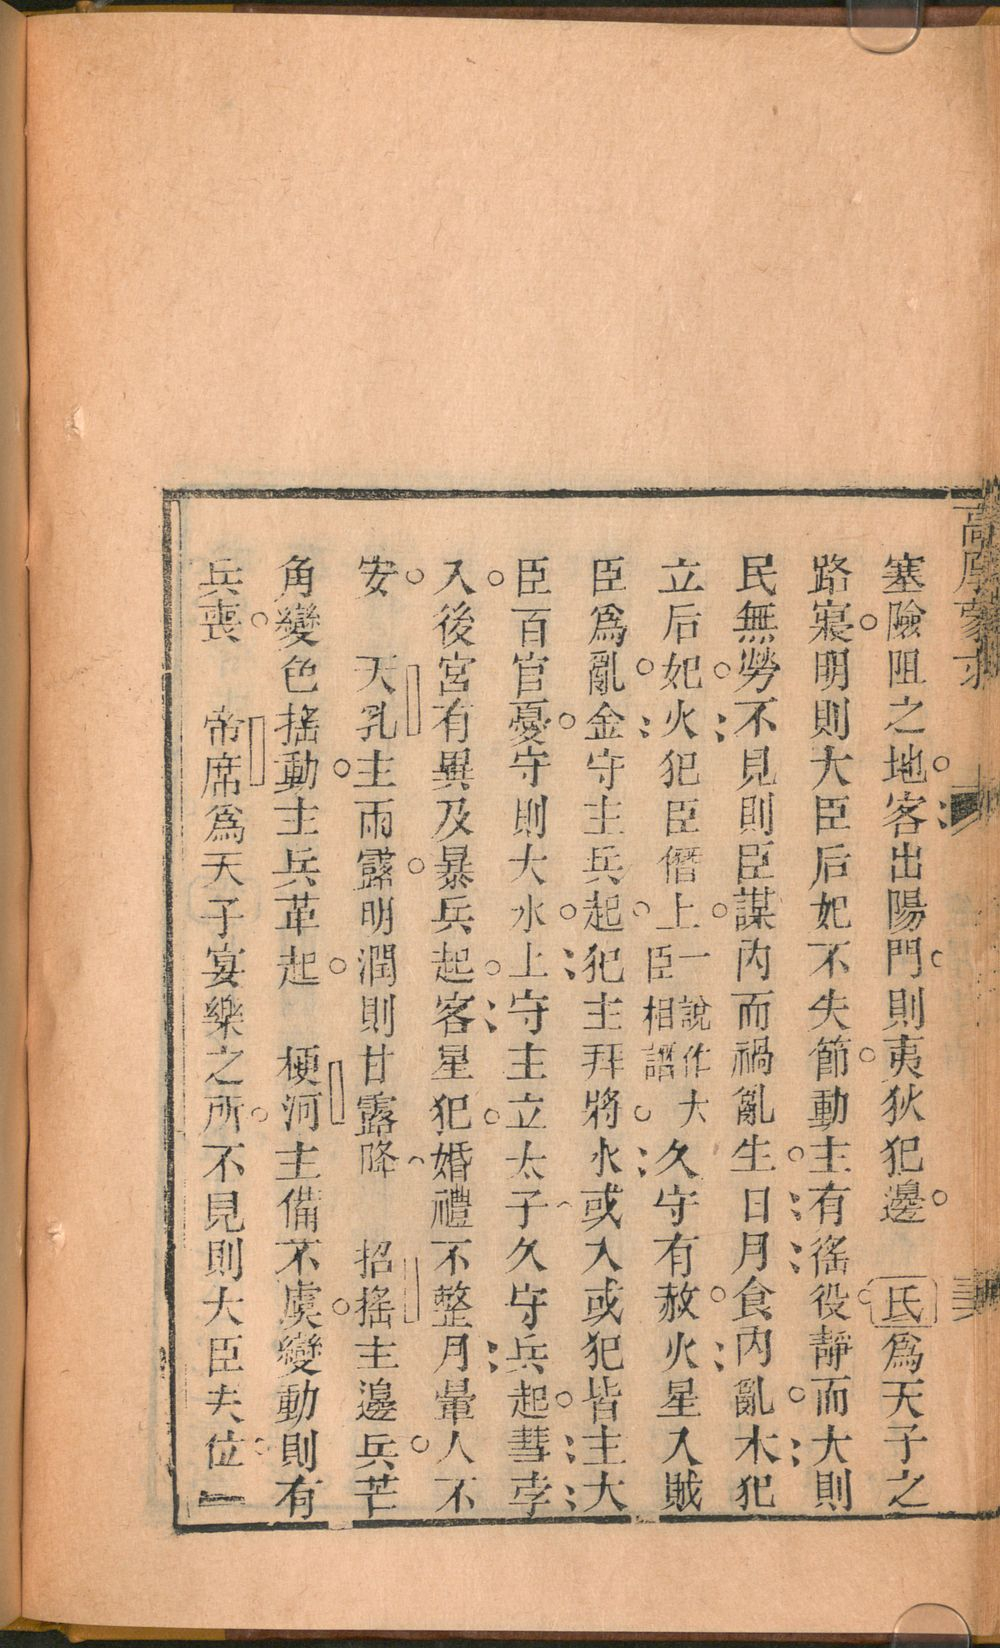 高厚蒙求
塞險阻之地客出陽門則夷狄犯邊　氐爲天子之
路寢明則大臣后妃不失節動主有徭役靜而大則
民無勞不見則臣謀內而禍亂生日月食內亂木犯
立后妃火犯臣僭上一說作大臣相譖久守有赦火星入賊
臣爲亂金守主兵起犯主拜將水或入或犯皆主大
臣百官憂守則大水土守主立太子久守兵起彗孛
入後宮有異及暴兵起客星犯婚禮不整月暈人不
安　天乳主雨露明潤則甘露降　招搖主邊兵芒
角變色搖動主兵革起　梗河主備不虞變動則有
兵喪　帝席爲天子宴樂之所不見則大臣失位